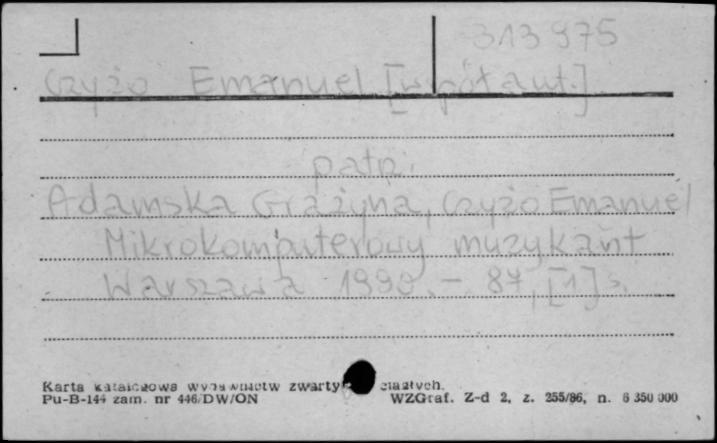 313 975
Czyżo Emanuel [współaut.]
patrz:
Adamska Grażyna, Czyżo Emanuel
Mikrokomputerowy muzykant
Warszawa 1990. - 87, [1] s.
Karta katalogowa wydawnictw zwartych ciągłych.
Pu-B-144 zam. nr 446/DW/ON WZGraf. Z-d 2, z. 255/86, n. 6 350 000